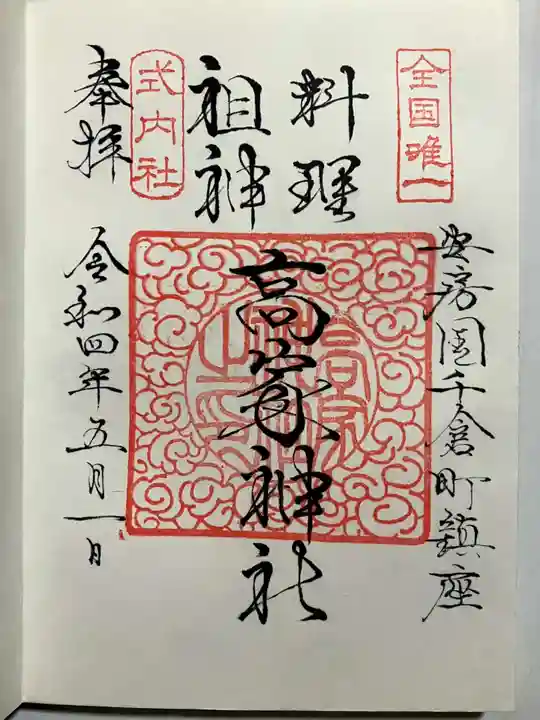 全国唯一
安房国千倉町鎮座
料理
祖神
高家神社
式内社
奉拝
令和四年五月一日